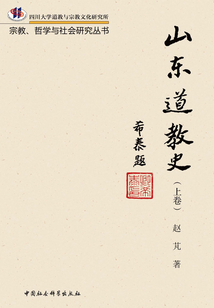 四川大学道教与宗教文化研究所
宗教、哲学与社会研究丛书
山东道教史
(上卷)
希泰题
赵芃 著
中国社会科学出版社